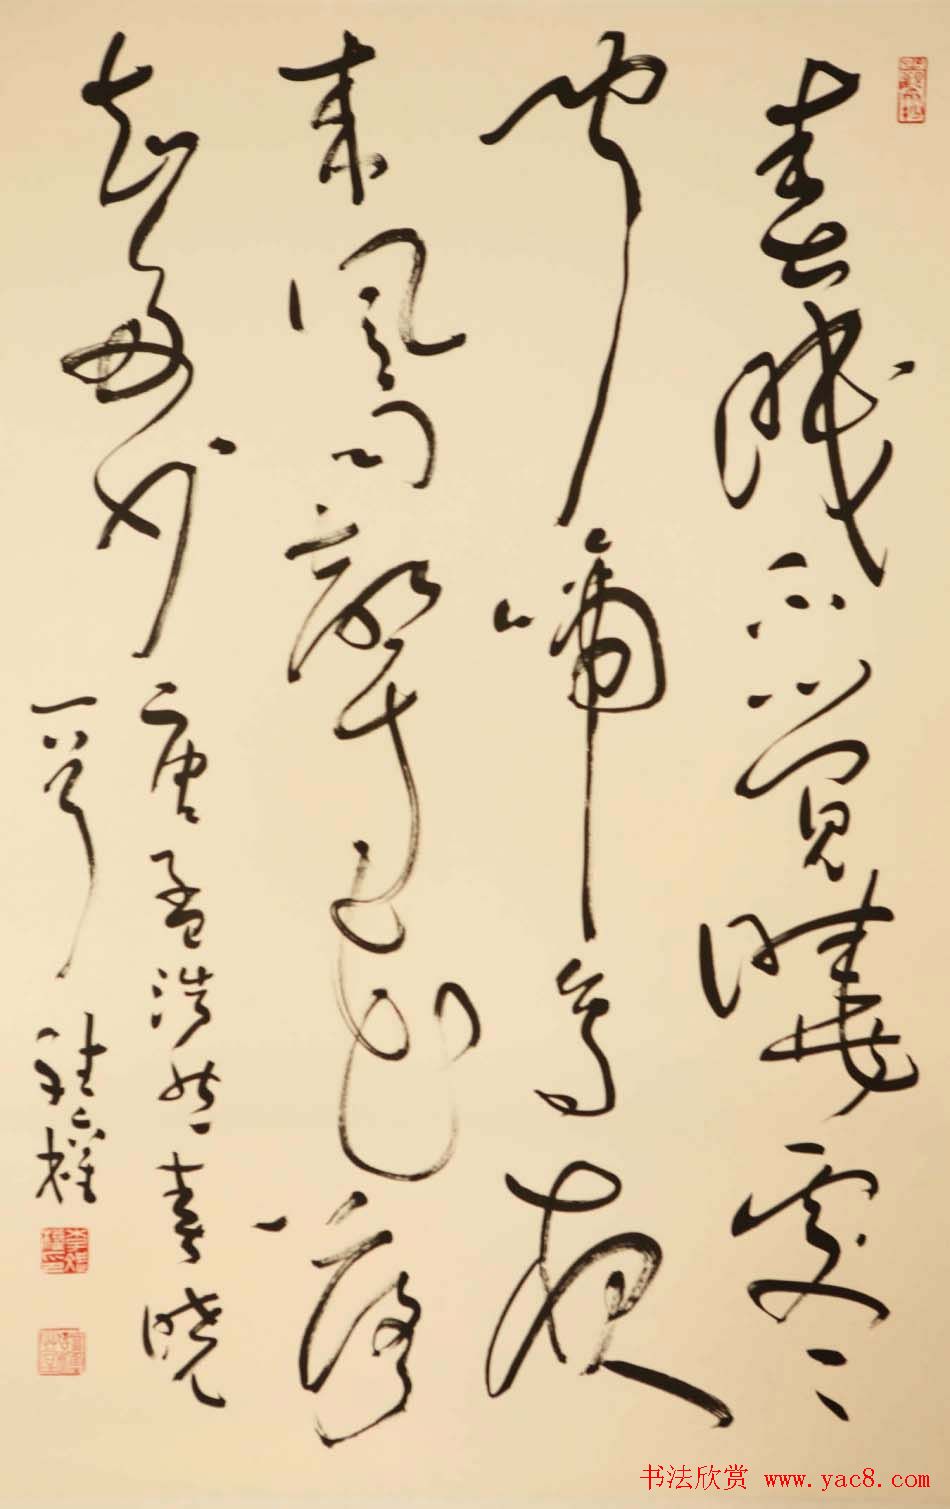 春眠不觉晓处〻
闻啼鸟夜
来风雨声花落
知多少
唐孟浩然春晓
一首
书法欣赏 www.yac8.com